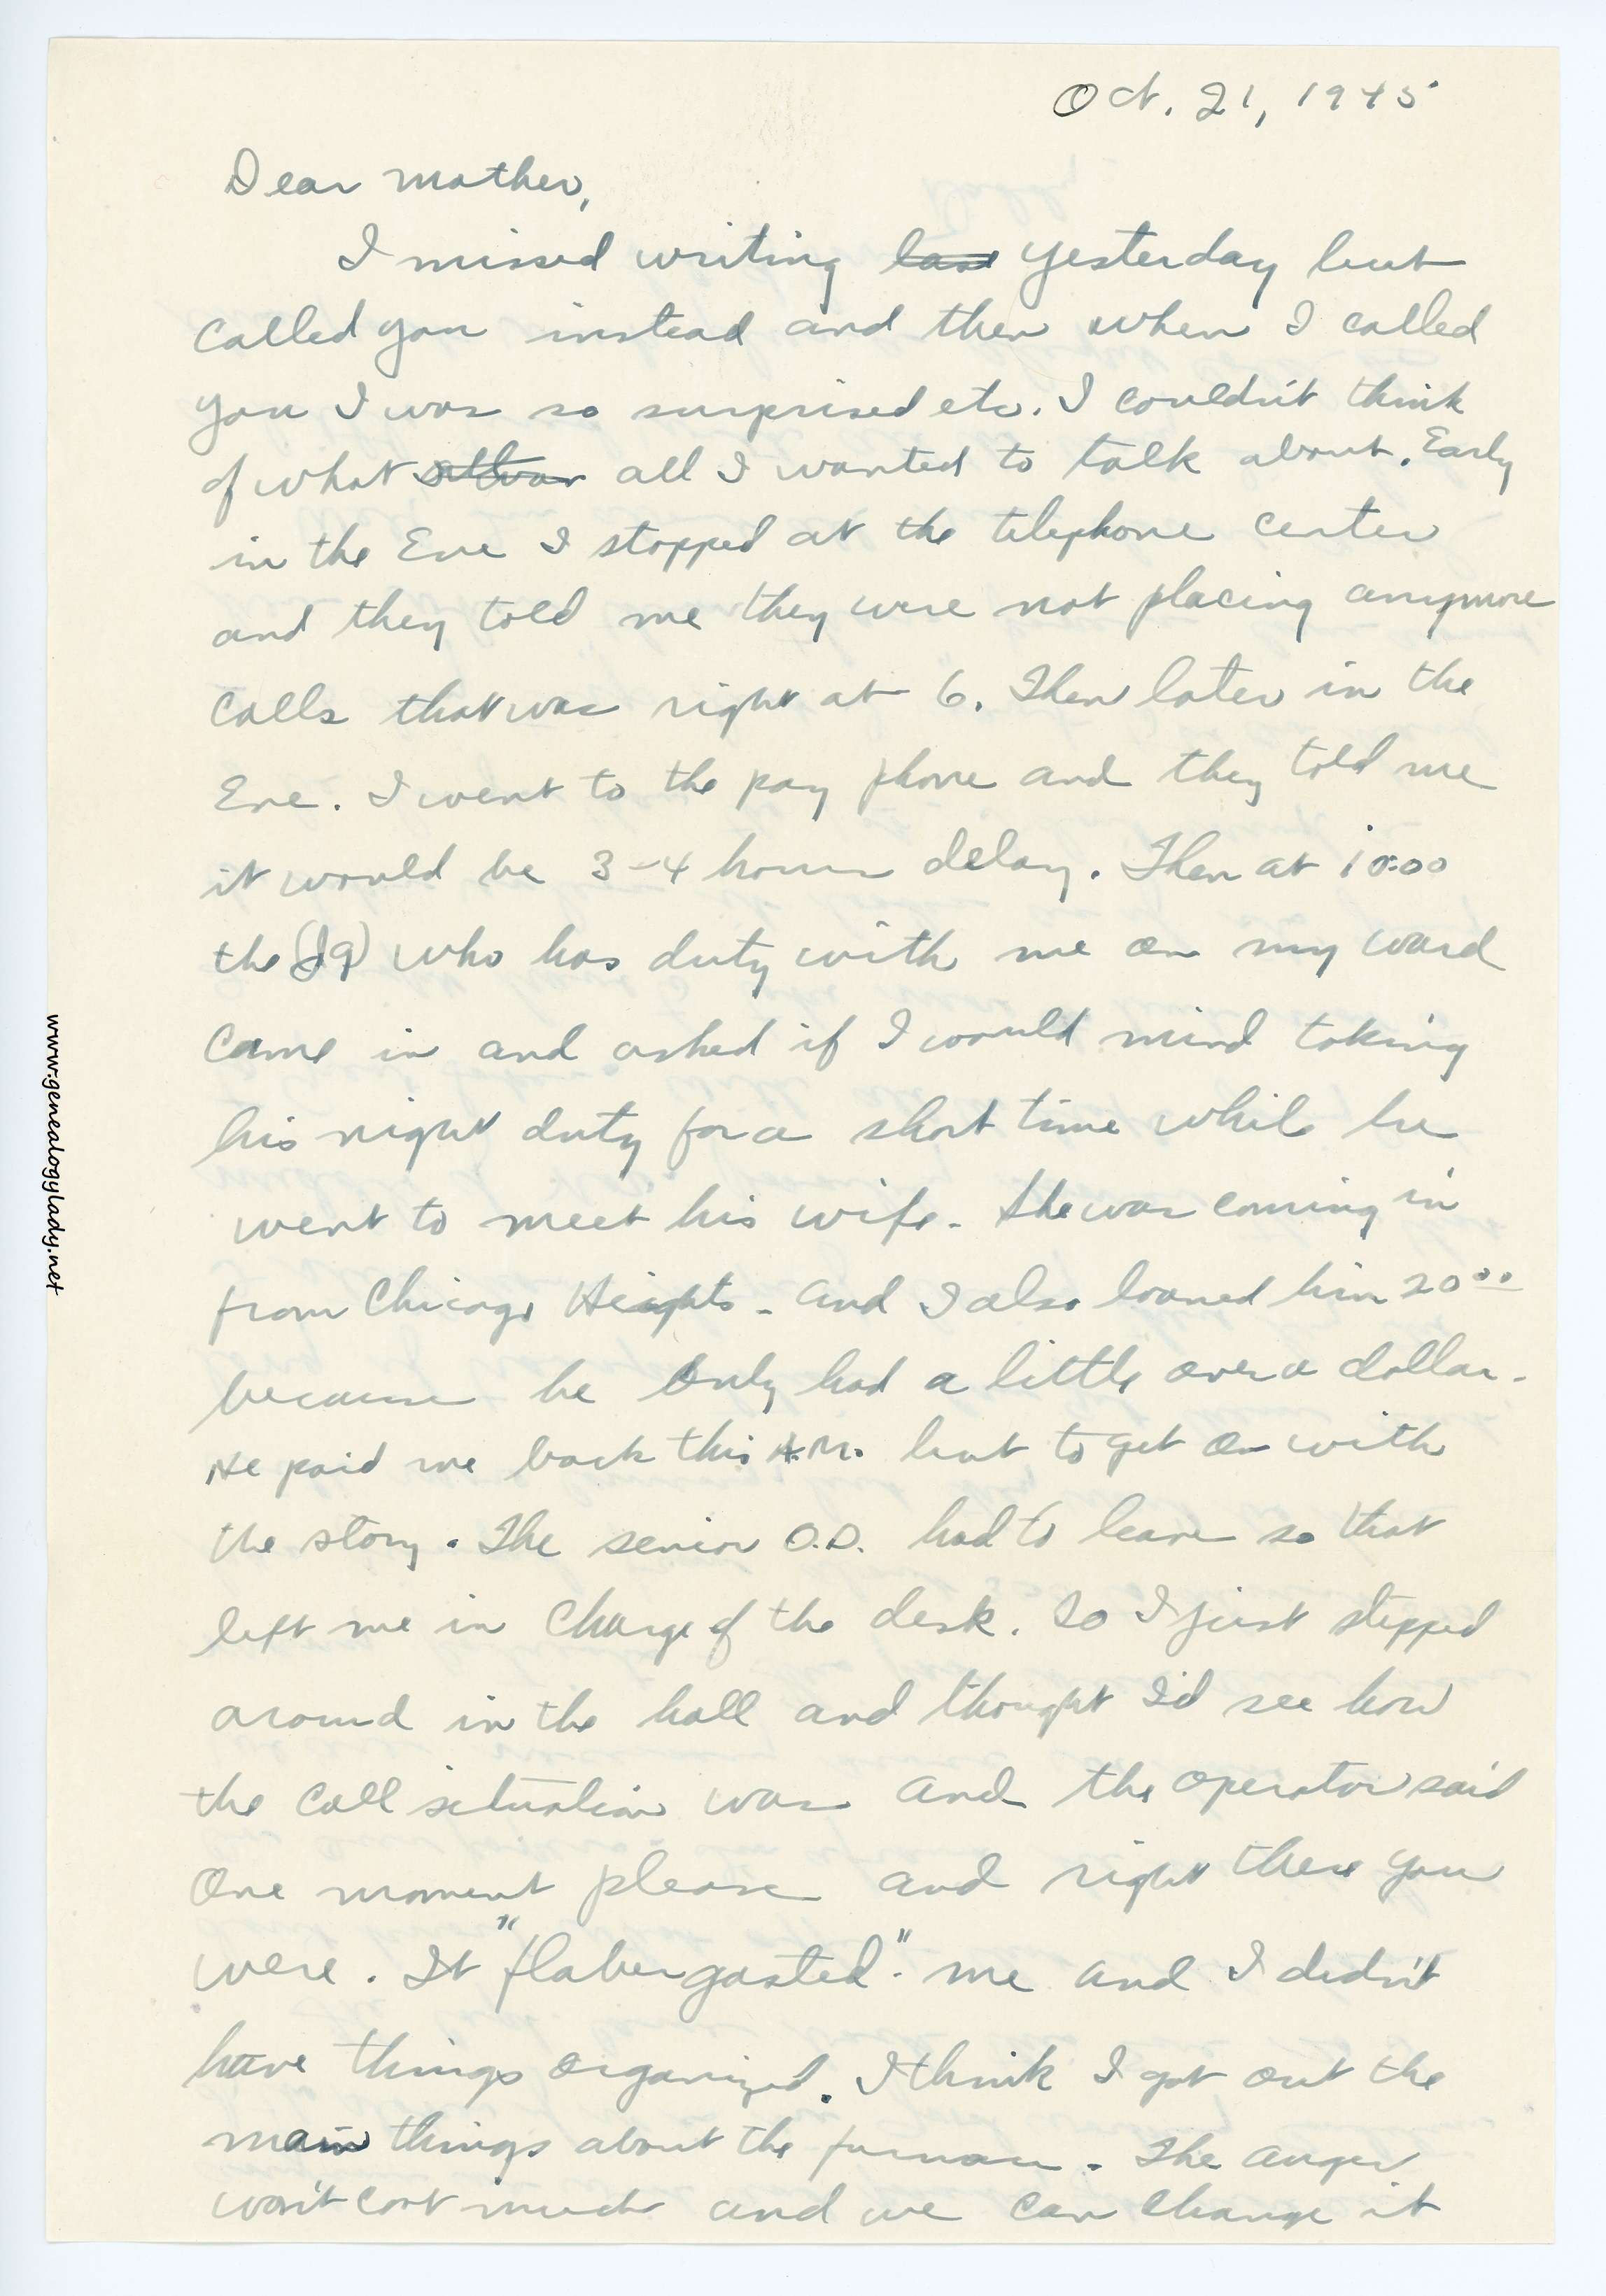 Oct. 21, 1945
Dear Mother,
I missed writing last yesterday but
called you instead and then when I called
you I was so surprised etc. I couldn't think
of what all I wanted to talk about. Early
in the Eve I stopped at the telephone center
and they told me they were not placing anymore
calls that was right at 6. Then later in the
Eve. I went to the pay phone and they told me
it would be 3-4 hours delay. Then at 10:00
the (Jg) who has duty with me on my ward
came in and asked if I would mind taking
his night duty for a short time while he
went to meet his wife. She was coming in
from Chicago Heights - and I also loaned him 20⁰⁰
because he only had a little over a dollar.
He paid me back this A.M. but to get on with
the story. The senior O.D. had to leave so that
left me in charge of the desk. So I just stepped
around in the hall and thought I'd see how
the call situation was and the operator said
One moment please and right there you
were. It "flabergasted" me and I didn't
have things organized. I think I got out the
main things about the furnace. The auger
won't cost much and we can change it
www.genealogylady.net